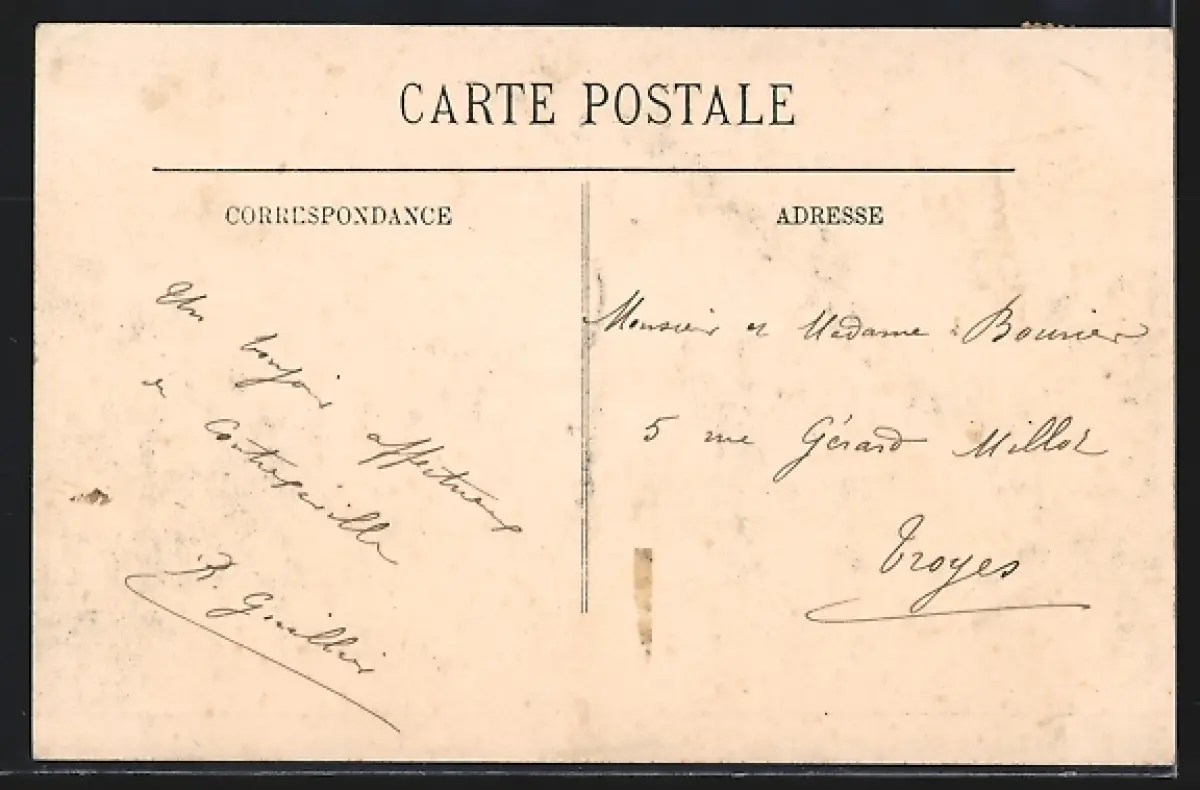 CARTE POSTALE
CORRESPONDANCE
Un bonjour affectueux
de Contrexéville
P. Guillier
ADRESSE
Monsieur et Madame Bourier
5 rue Gérard Millot
Troyes